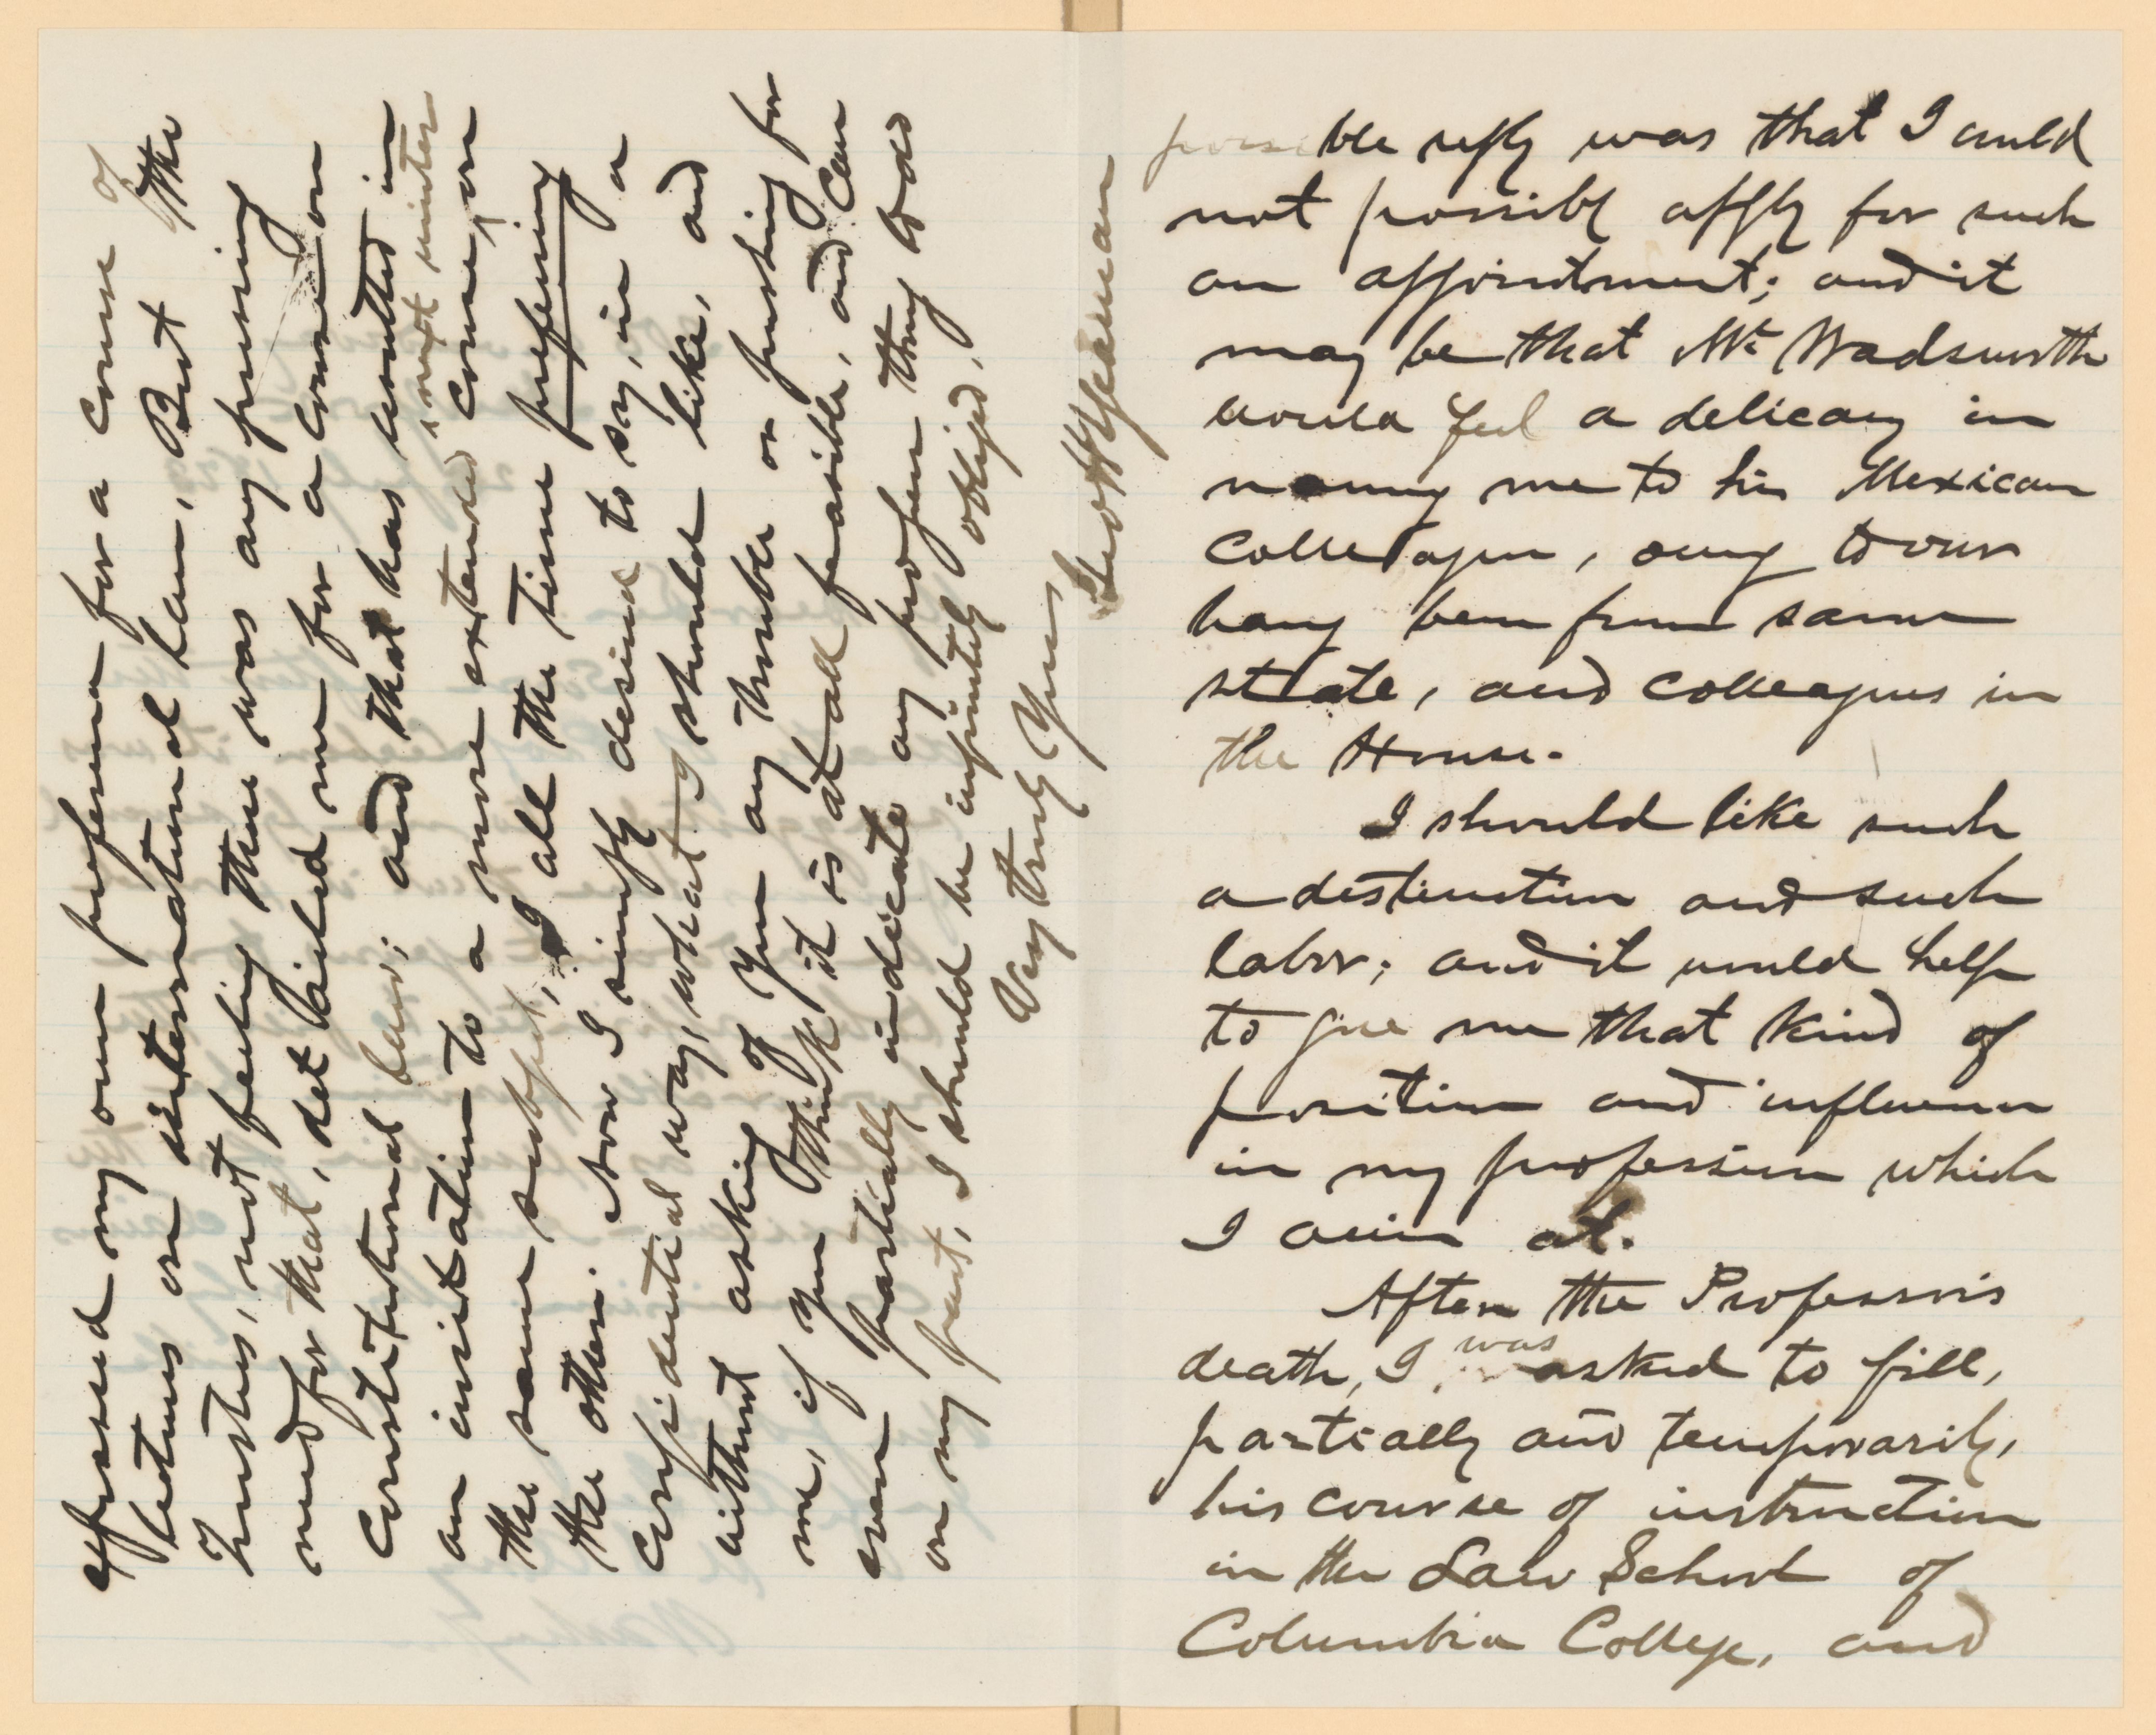 possible reply was that I could
not possibly apply for such
an appointment; and it
may be that Mr Wadsworth
would feel a delicacy in
naming me to his Mexican
colleague, owing to our
having been from same
state, and colleagues in
the House.
I should like such
a destinction and such
labor; and it would help
to give me that kind of
position and influence
in my profession which
I aim at.
After the Professors
death, I was asked to fill,
partially and temporarily,
his course of instruction
in the Law School of
Columbia College, and
expressed my own preference for a course of
lectures on international law. But the
Trustees, not feeling there was any pressing
need for that, detailed me for a course on
Constitutional law; and that has resulted in
an invitation to a more extended course, on
next winter
the same subject; I all the time preferring
the other. Now I simply desired to say, in a
confidential way, what I should like, and
without asking of you any trouble or pushing for
me, if you think it is at all feasible, and can
even partially indicate any proper thing to do
on my part, I should be infinitely obliged.
Very truly Yours
Geo H Yeaman